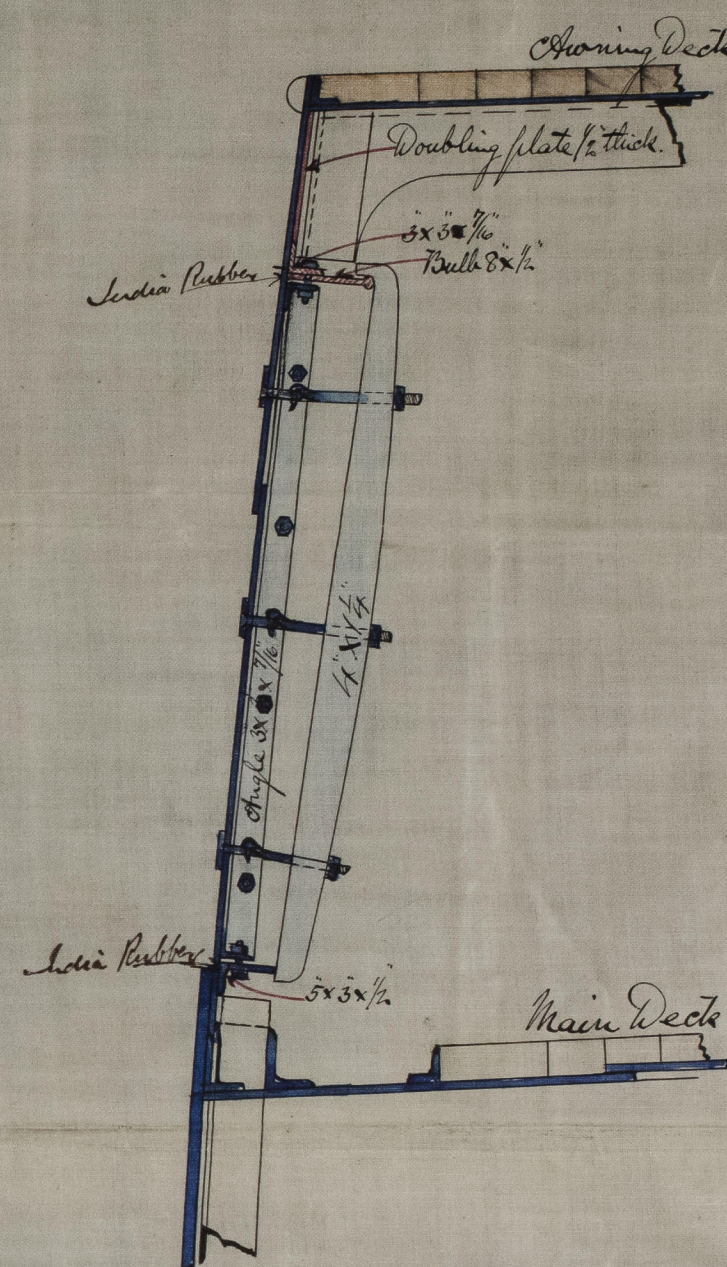 Awning Deck
Doubling plate 1/2" thick.
3" x 3" x 7/16"
Bulb 8" x 1/2"
India Rubber
4" x 1 1/4"
Angle 3 x 3 x 7/16"
India Rubber
5" x 3" x 1/2"
Main Deck